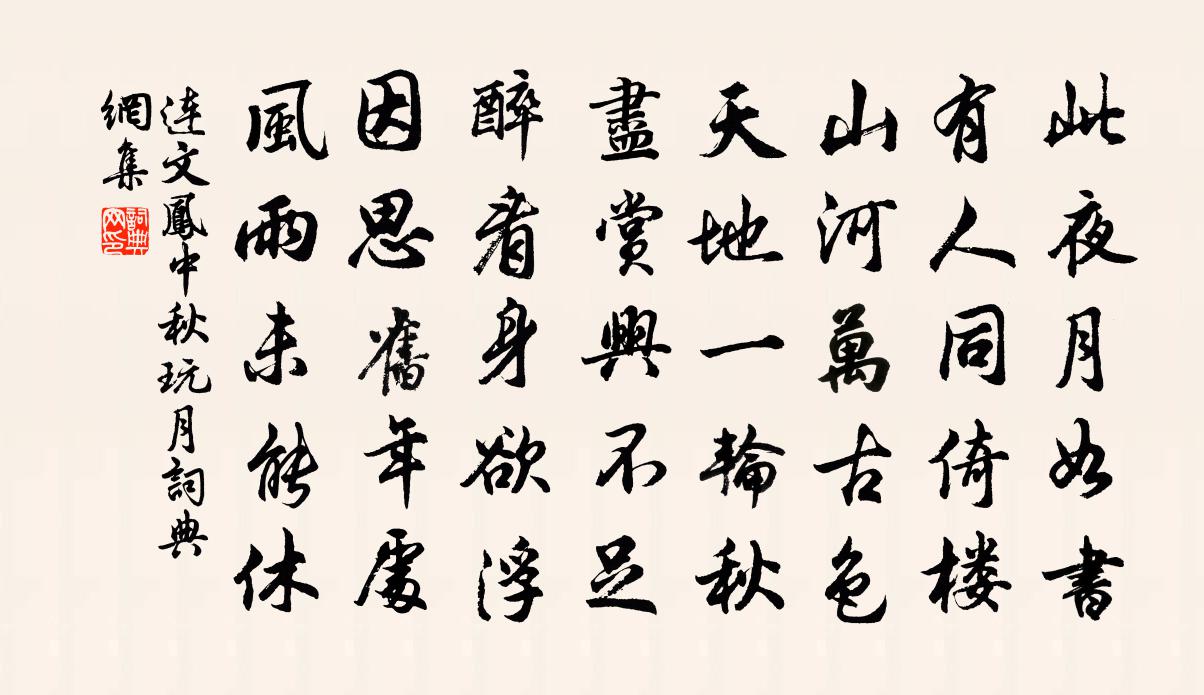 此夜月如書
有人同倚楼
山河萬古色
天地一輪秋
盡賞興不足
醉看身欲浮
因思舊年處
風雨未能休
连文鳳中秋玩月詞典
網集
詞典
网印